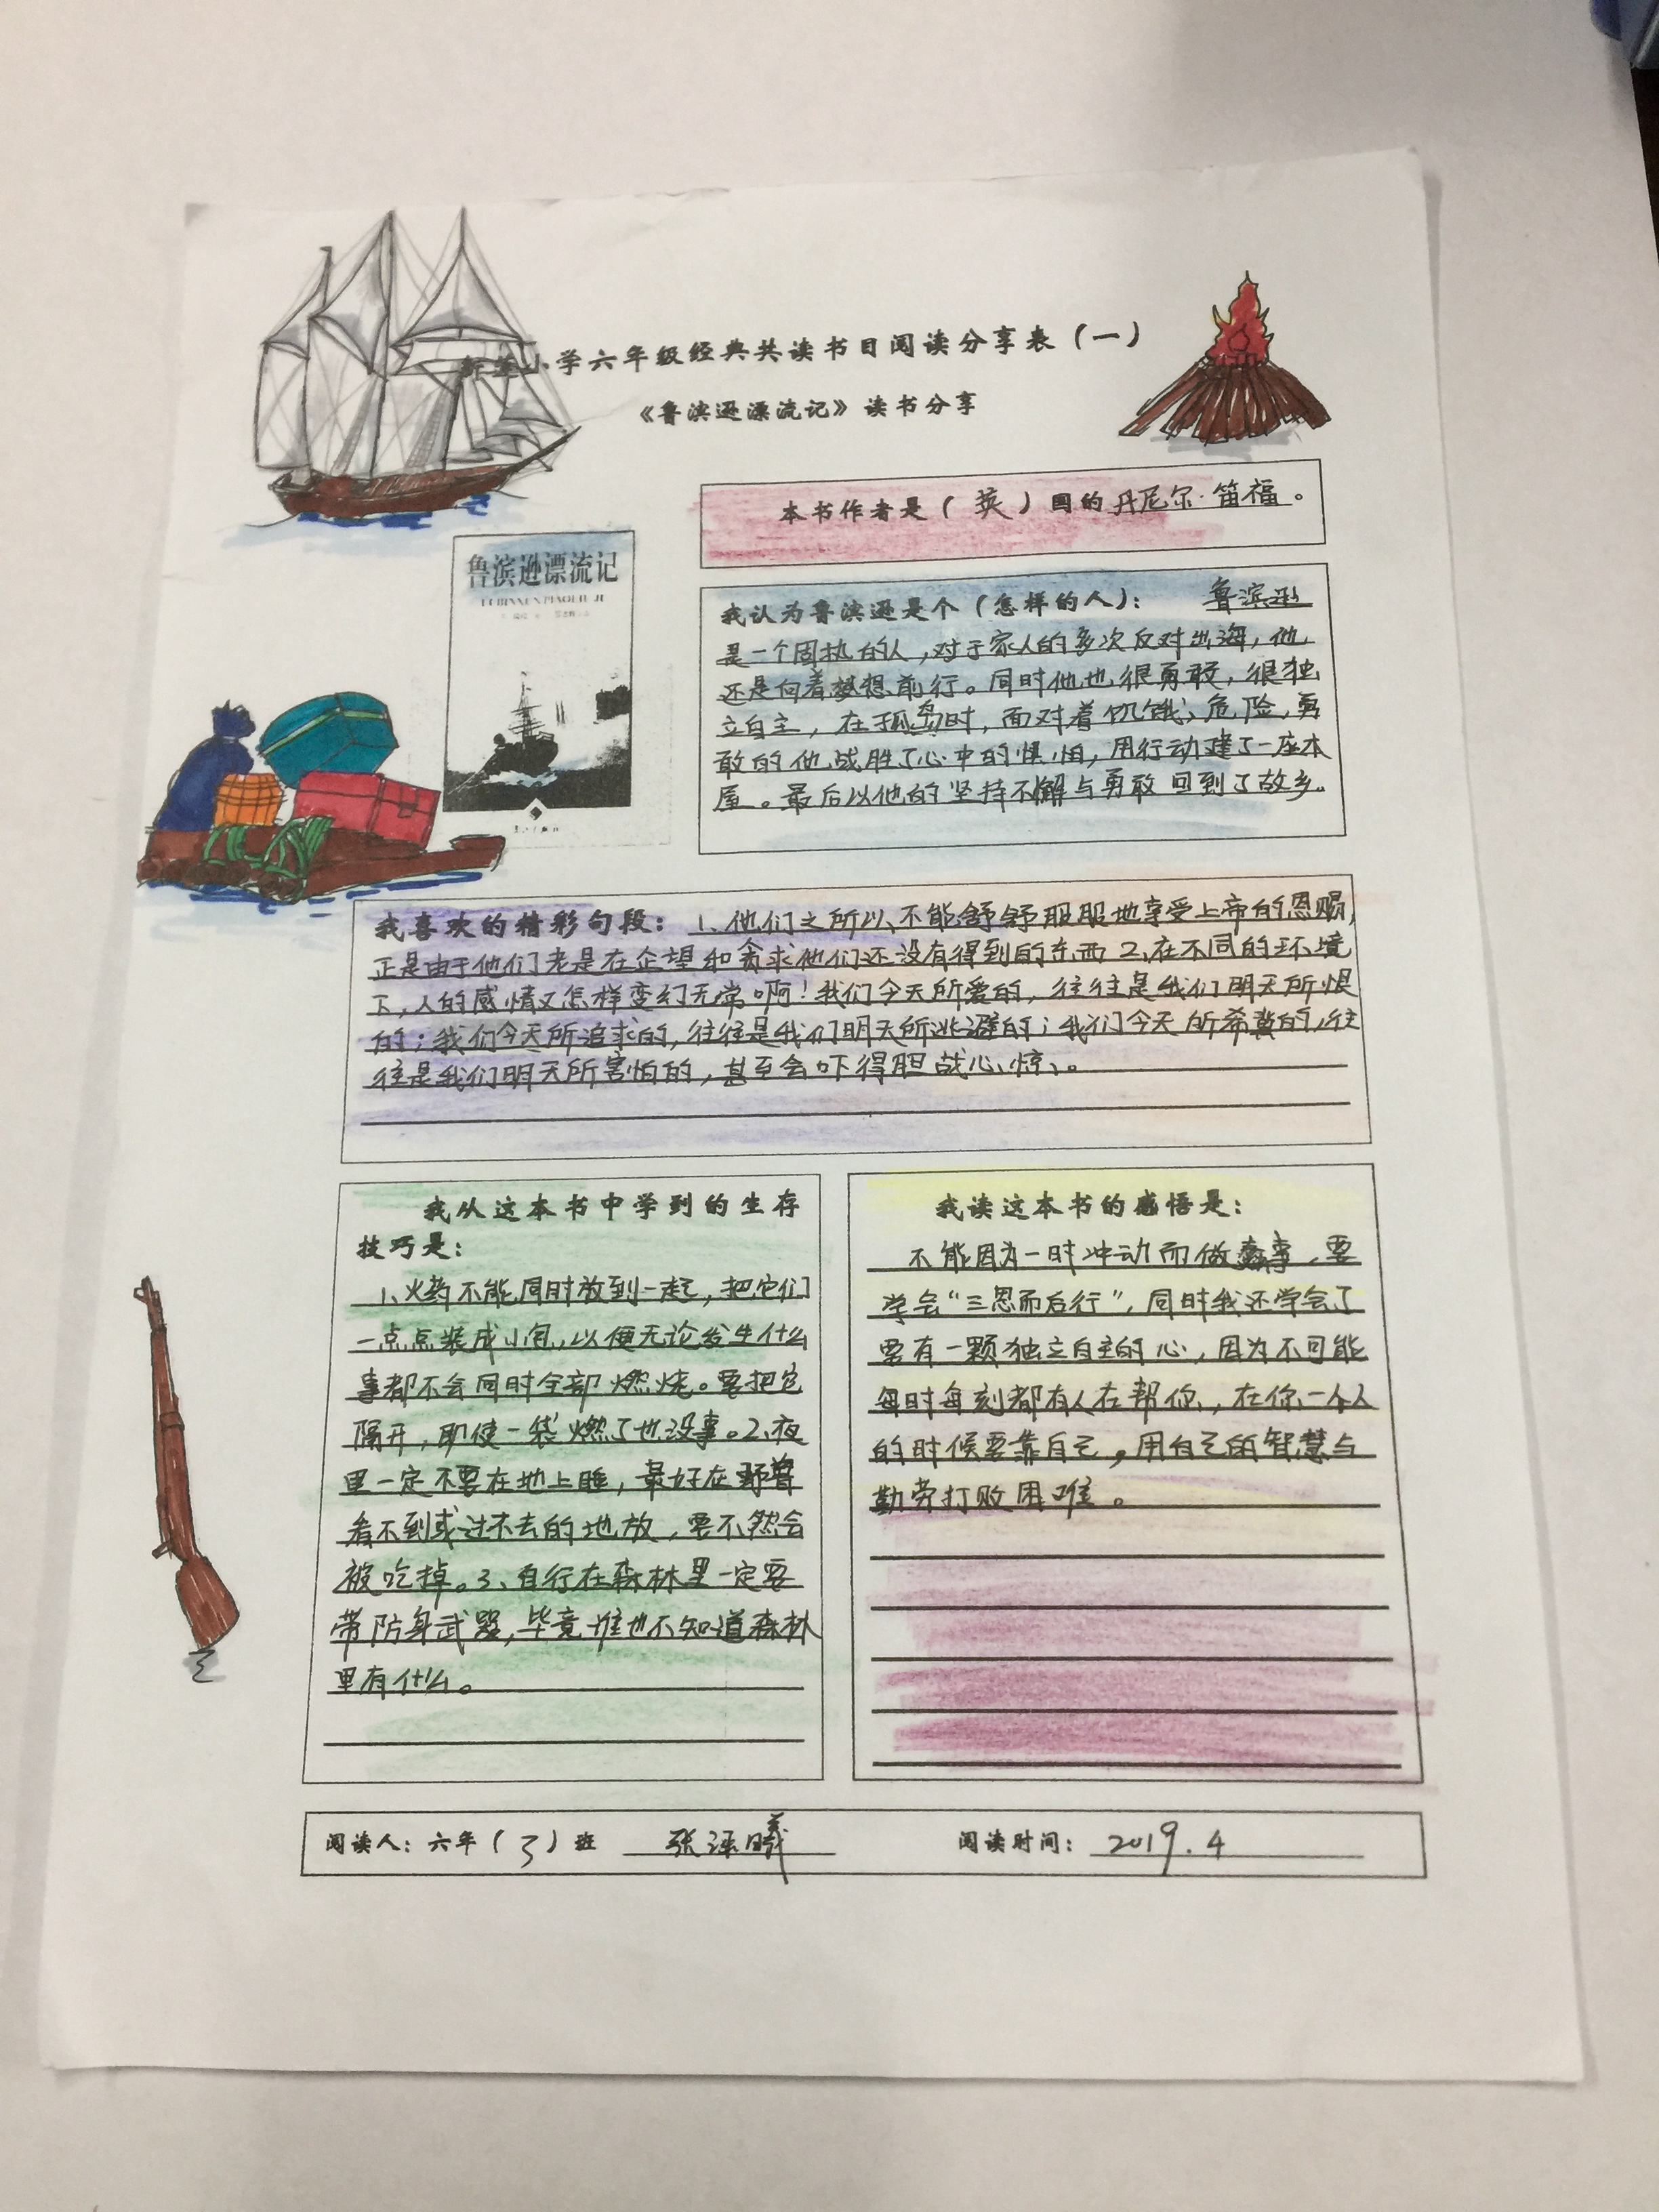 小学六年级经典共读书目阅读分享表（一）
《鲁滨逊漂流记》读书分享
本书作者是（英）国的丹尼尔·笛福。
鲁滨逊漂流记
我认为鲁滨逊是个（怎样的人）： 鲁滨逊
是一个固执的人，对于家人的多次反对出海，他
还是向着梦想前行。同时他也很勇敢，很独
立自主，在孤岛时，面对着饥饿、危险，勇
敢的他战胜了心中的惧怕，用行动建了一座木
屋。最后以他的坚持不懈与勇敢回到了故乡。
我喜欢的精彩句段：1、他们之所以不能舒舒服服地享受上帝的恩赐，
正是由于他们老是在企望和贪求他们还没有得到的东西 2、在不同的环境
下，人的感情又怎样变幻无常啊！我们今天所爱的，往往是我们明天所恨
的；我们今天所追求的，往往是我们明天所逃避的；我们今天所希冀的，往
往是我们明天所害怕的，甚至会吓得胆战心惊、。
我从这本书中学到的生存
技巧是：
1、火药不能同时放到一起，把它们
一点点装成小包，以便无论发生什么
事都不会同时全部燃烧。要把它
隔开，即使一袋燃了也没事。2、夜
里一定不要在地上睡，最好在野兽
看不到或过不去的地放，要不然会
被吃掉。3、自行在森林里一定要
带防身武器，毕竟谁也不知道森林
里有什么。
我读这本书的感悟是：
不能因为一时冲动而做蠢事，要
学会“三思而后行”，同时我还学会了
要有一颗独立自主的心，因为不可能
每时每刻都有人在帮你，在你一个人
的时候要靠自己，用自己的智慧与
勤劳打败困难。
阅读人：六年（3）班 张 曦 阅读时间：2019.4